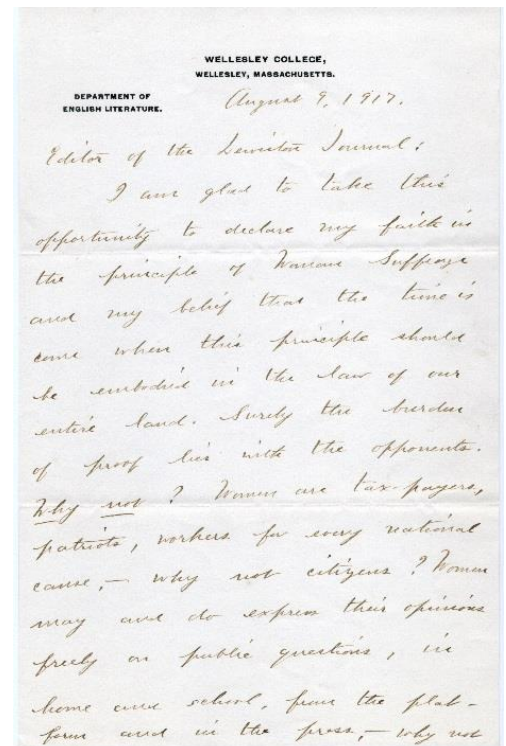 WELLESLEY COLLEGE,
WELLESLEY, MASSACHUSETTS.
DEPARTMENT OF
ENGLISH LITERATURE.
August 9, 1917.
Editor of the Lewiston Journal:
I am glad to take this
opportunity to declare my faith in
the principle of Woman Suffrage
and my belief that the time is
come when this principle should
be embodied in the law of our
entire land. Surely the burden
of proof lies with the opponents.
Why not? Women are tax-payers,
patriots, workers for every national
cause, — why not citizens? Women
may and do express their opinions
freely on public questions, in
home and school, from the plat-
form and in the press, — why not